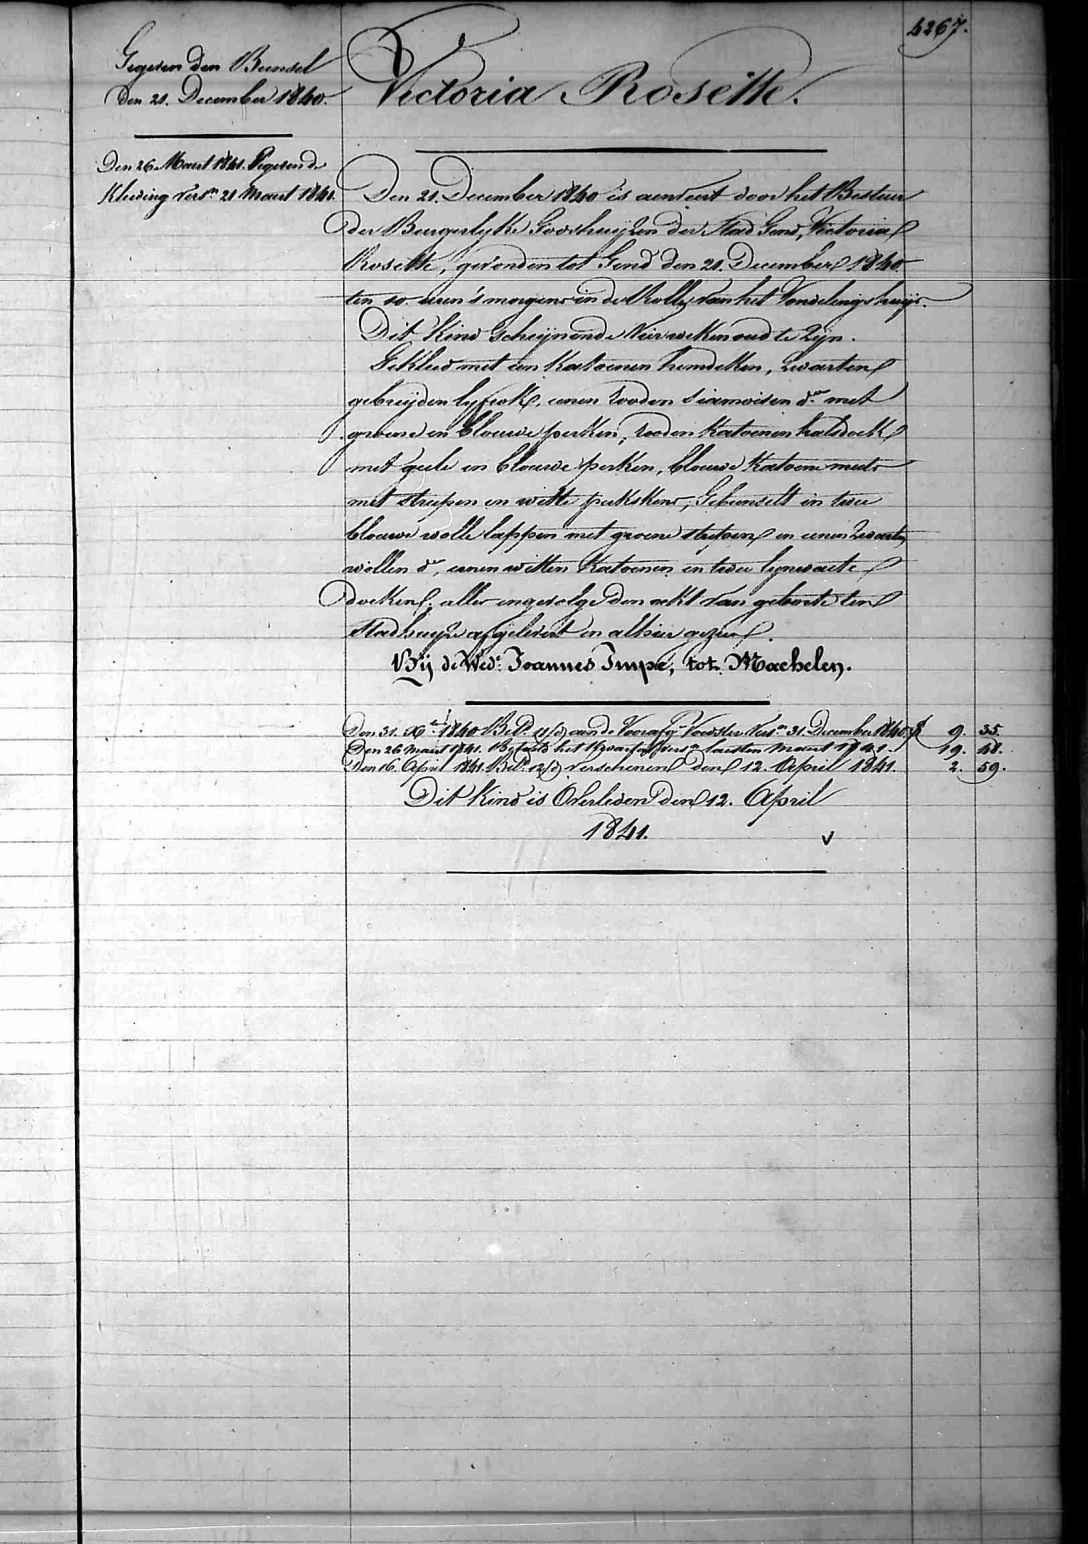 4267.
Gegeven den Bunsel
den 21. December 1840.
Victoria Rosette.
Den 26. Maert 1841. Gegeven de
Kleeding Vers.n 21 Maert 1841.
Den 21. December 1840 is aenveert door het Bestuur
der Burgerlyke Godshuyzen der Stad Gend, Victoria
Rosette, gevonden tot Gend den 21. December 1840.
ten 10. uren 's morgens in de Rolle van het Vondelingshuys.
Dit Kind Schynende Vier weken oud te Zyn.
Gekleed met een Katoenen hemdeken, zwarten
gebreyden lyfrok, eenen rooden siamoisen d.en met
groene en blouwe perken, rooden Katoenen halsdoek
met geele en blouwe perken, blouwe Katoene muts
met streepen en witte perkskens, Gebunselt in twee
blouwe wolle lappen met groene streepen en eenen zwarten
wollen d.en, eenen witten Katoenen en twee lynwaete
doeken, alles ingevolge den akt van geboorte ten
Stadhuyze afgelevert en alhier gezien.
By de Wed.e Joannes Impe, tot Machelen.
Den 31. X.e 1840 Bet.d 11/d aen de Voorafg. Voedster Vers.n 31. December 1840. f 9. 35.
Den 26 Maert 1841. Betaeld het Kwartael Vers.n laesten Maert 1841. 19. 48.
Den 16. April 1841. Bet.d 12/d Verschenen den 12. April 1841. 2. 59.
Dit Kind is Overleden den 12. April
1841. v